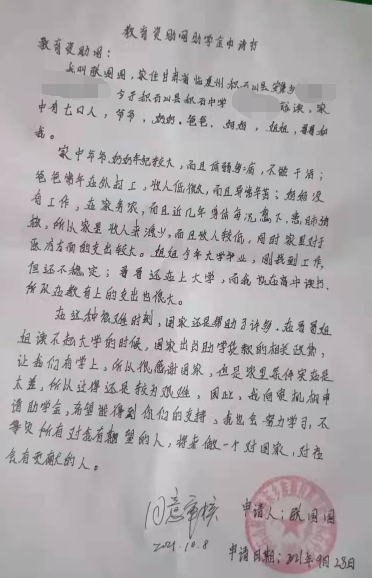 教育资助网助学金申请书
教育资助网：
我叫 家住甘肃省临夏州积石山县
今于积石山县积石中学 就读，家
中有七口人，爷爷，奶奶，爸爸，妈妈，姐姐，哥哥和
我。
家中爷爷、奶奶年纪较大，而且体弱多病，不能干活；
爸爸常年在外打工，收入低微，而且非常辛苦；妈妈没
有工作，在家务农，而且近几年身体每况愈下，患
所以家里收入来源少，而且收入较低，同时家里对于
医疗方面的支出较大。姐姐今年大学毕业，刚找到工作，
但还不稳定；哥哥还在上大学，而我也在高中读书，
所以在教育上的支出也很大。
在这种艰难时刻，国家还是帮助了许多。在哥哥姐
姐读不起大学的时候，国家出台助学贷款的相关政策，
让我们有学上。所以很感谢国家，但是家里条件实在是
太差，所以过得还是较为艰难，因此，我向贵机构申
请助学金，希望能得到你们的支持。我也会努力学习，不
辜负所有对我有期望的人，将来做一个对国家，对社
会有贡献的人。
同意审核
2021.10.8
申请人：
申请日期：2021年9月28日